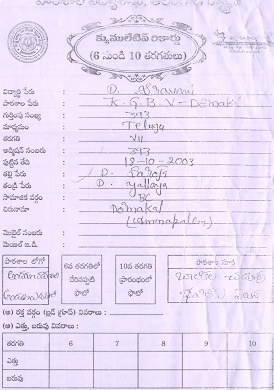 క్యుములేటివ్ రికార్డు
(6 నుండి 10 తరగతులు)
విద్యార్థి పేరు : D. Sravani
పాఠశాల పేరు : K.G.B.V - Dornakal
గుర్తింపు సంఖ్య : 393
మాధ్యమం : Telugu
తరగతి : VII
అడ్మిషన్ నంబరు : 393
పుట్టిన తేది : 18-10-2003
తల్లి పేరు : D. Saroja
తండ్రి పేరు : D. Yallaya
సామాజిక వర్గం : BC
చిరునామా : Dornakal
మొబైల్ నంబరు :
మెయిల్ ఐ.డి. :
పాఠశాల లోగో
6వ తరగతిలో చేరినప్పటి ఫొటో
10వ తరగతి ప్రారంభంలో ఫొటో
(అ) రక్త వర్గం (బ్లడ్ గ్రూప్) వివరాలు :
(ఆ) ఎత్తు, బరువు వివరాలు :
తరగతి 6 7 8 9 10
ఎత్తు
బరువు